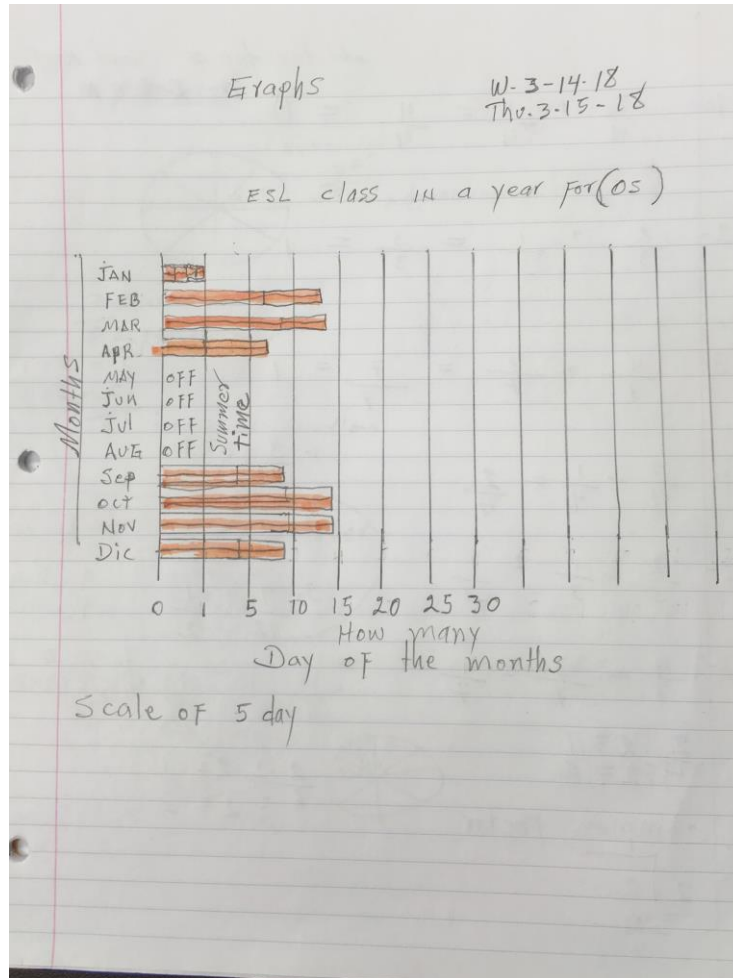 Graphs
W. 3-14-18
Thu. 3-15-18
ESL class IN a year For (OS)
Months
JAN
FEB
MAR
APR
MAY OFF
Jun OFF
Jul OFF
AUG OFF
Summer
time
Sep
OCT
NOV
Dic
0 1 5 10 15 20 25 30
How many
Day OF the months
Scale OF 5 day